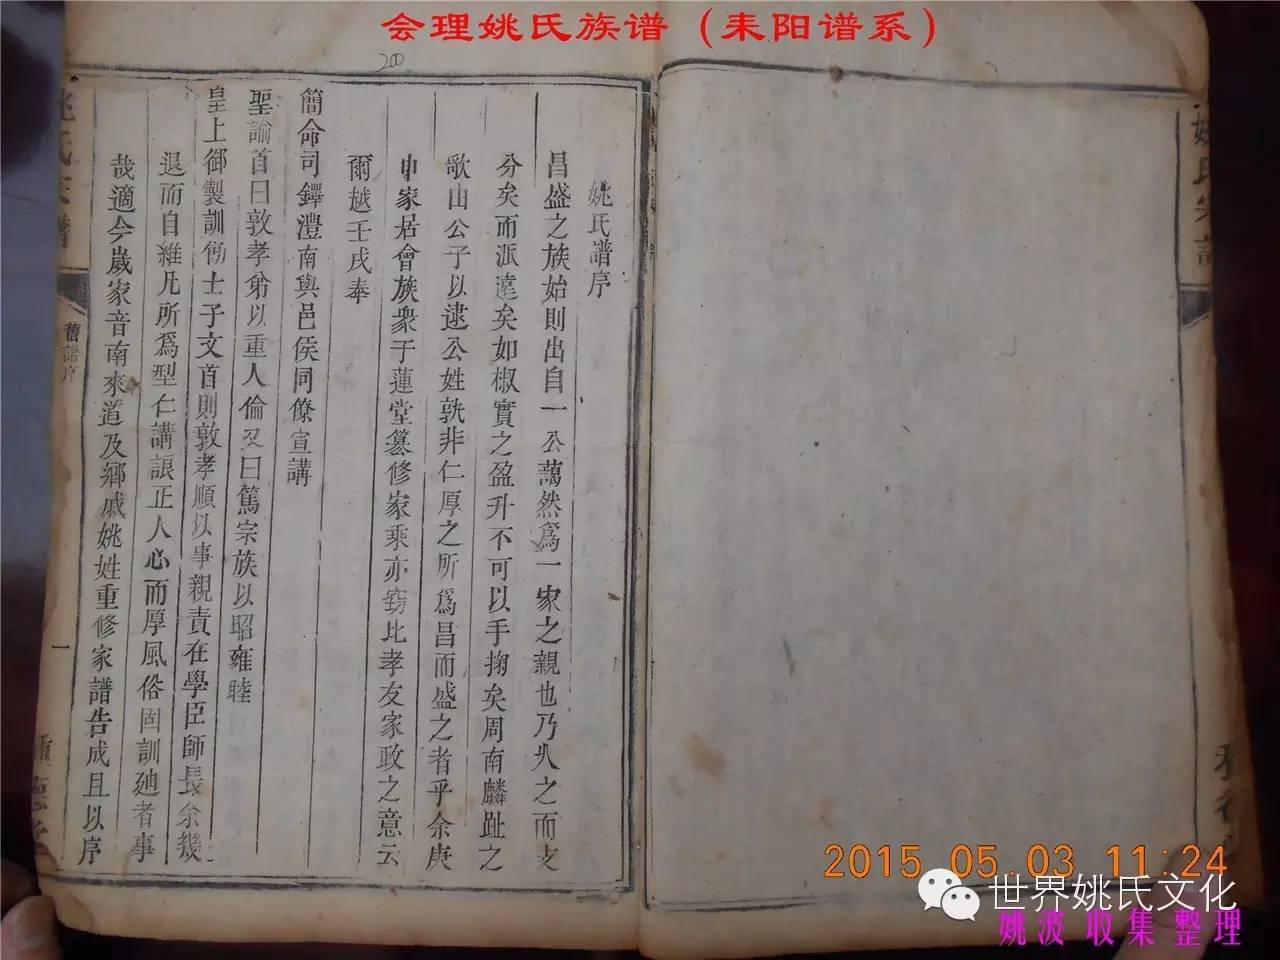 会理姚氏族谱（耒阳谱系）
200
姚氏譜序
昌盛之族始則出自一公藹然爲一家之親也乃乆之而支
分矣而派遠矣如椒實之盈升不可以手掬矣周南麟趾之
歌由公子以逮公姓孰非仁厚之所爲昌而盛之者乎余庚
申家居會族衆于蓮堂纂修家乘亦竊比孝友家政之意云
爾越壬戌奉
簡命司鐸澧南與邑侯同僚宣講
聖諭首曰敦孝弟以重人倫又曰篤宗族以昭雍睦
皇上御製訓飭士子文首則敦孝順以事親責在學臣師長余幾
退而自維凡所爲型仁講誼正人心而厚風俗固訓廸者事
哉適今歲家音南來道及鄉戚姚姓重修家譜告成且以序
姚氏宗譜
舊譜序
一
2015.05.03 11:24
世界姚氏文化
姚波 收集 整理